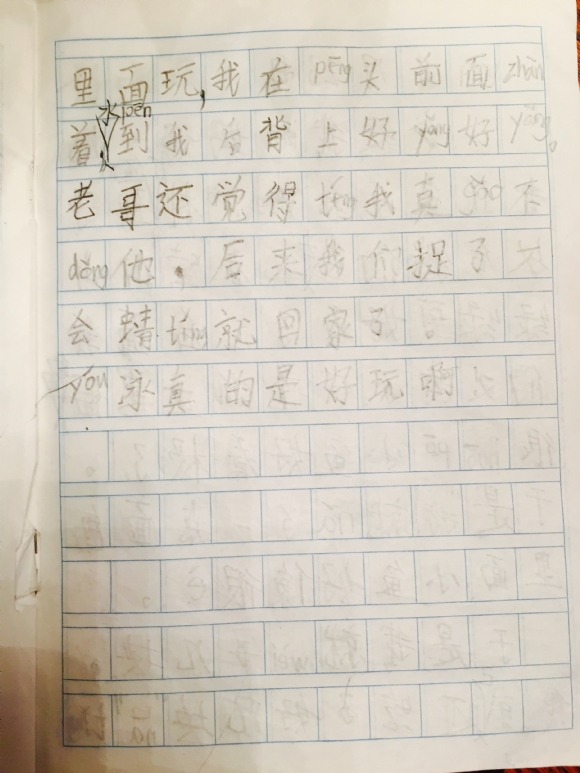 里面玩,我在pēng头前面zhàn
着水pēn到我后背上好yǎng好yǎng。
老哥还觉得tíng我真gǎo不
dǒng他,后来我们捉了
会蜻tíng就回家了。
yóu泳真的是好玩啊